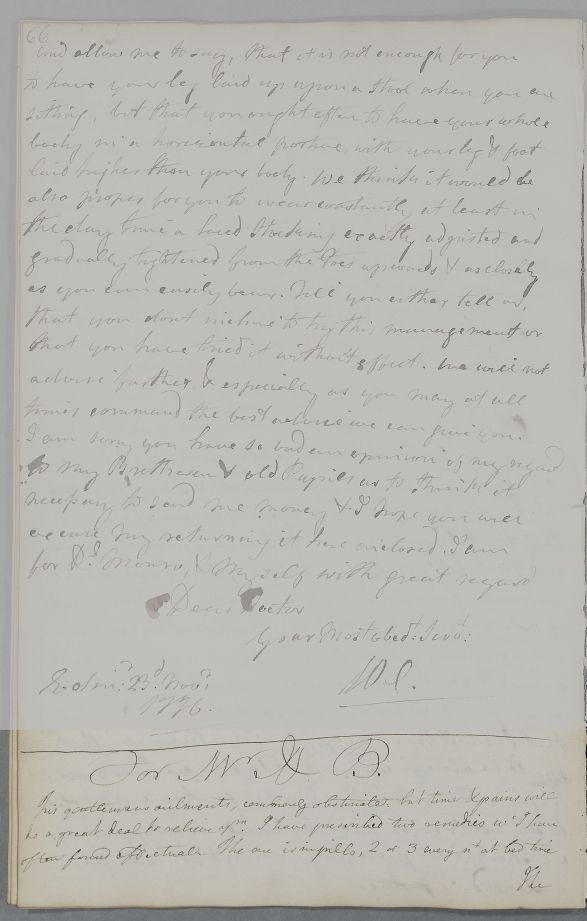 66
And allow me to say, that it is not enough for you
to have your leg laid up upon a stool when you are
sitting, but that you ought often to have your whole
body in a horizontal posture, with your leg & foot
laid higher than your body. We think it would be
also proper for you to wear constantly at least in
the day time a laced stocking exactly adjusted and
gradually tightened from the Toes upwards & as closely
as you can easily bear. Till you either tell us,
that you dont incline to try this management or
that you have tried it without effect. we will not
advise further & especially as you may at all
times command the best advice we can give you.
I am sorry you have so bad an opinion of my regard
to my Bretheren & old Pupils as to think it
necessary to send me money & I hope you will
excuse my returning it here inclosed. I am
for Dr. Monro, & My self with great regard
Dear Doctor
Your Most obedt: Servt:
Edinr: 23d. Novr:
1776.
W C.
For Mr. B.
This gentlemans ailments, commonly obstinate. but time & pains will
do a great deal to relieve ym. I have prescribed two remedies wc I have
often found effectual. The one is in pills, 2 or 3 every nt at bed time
The